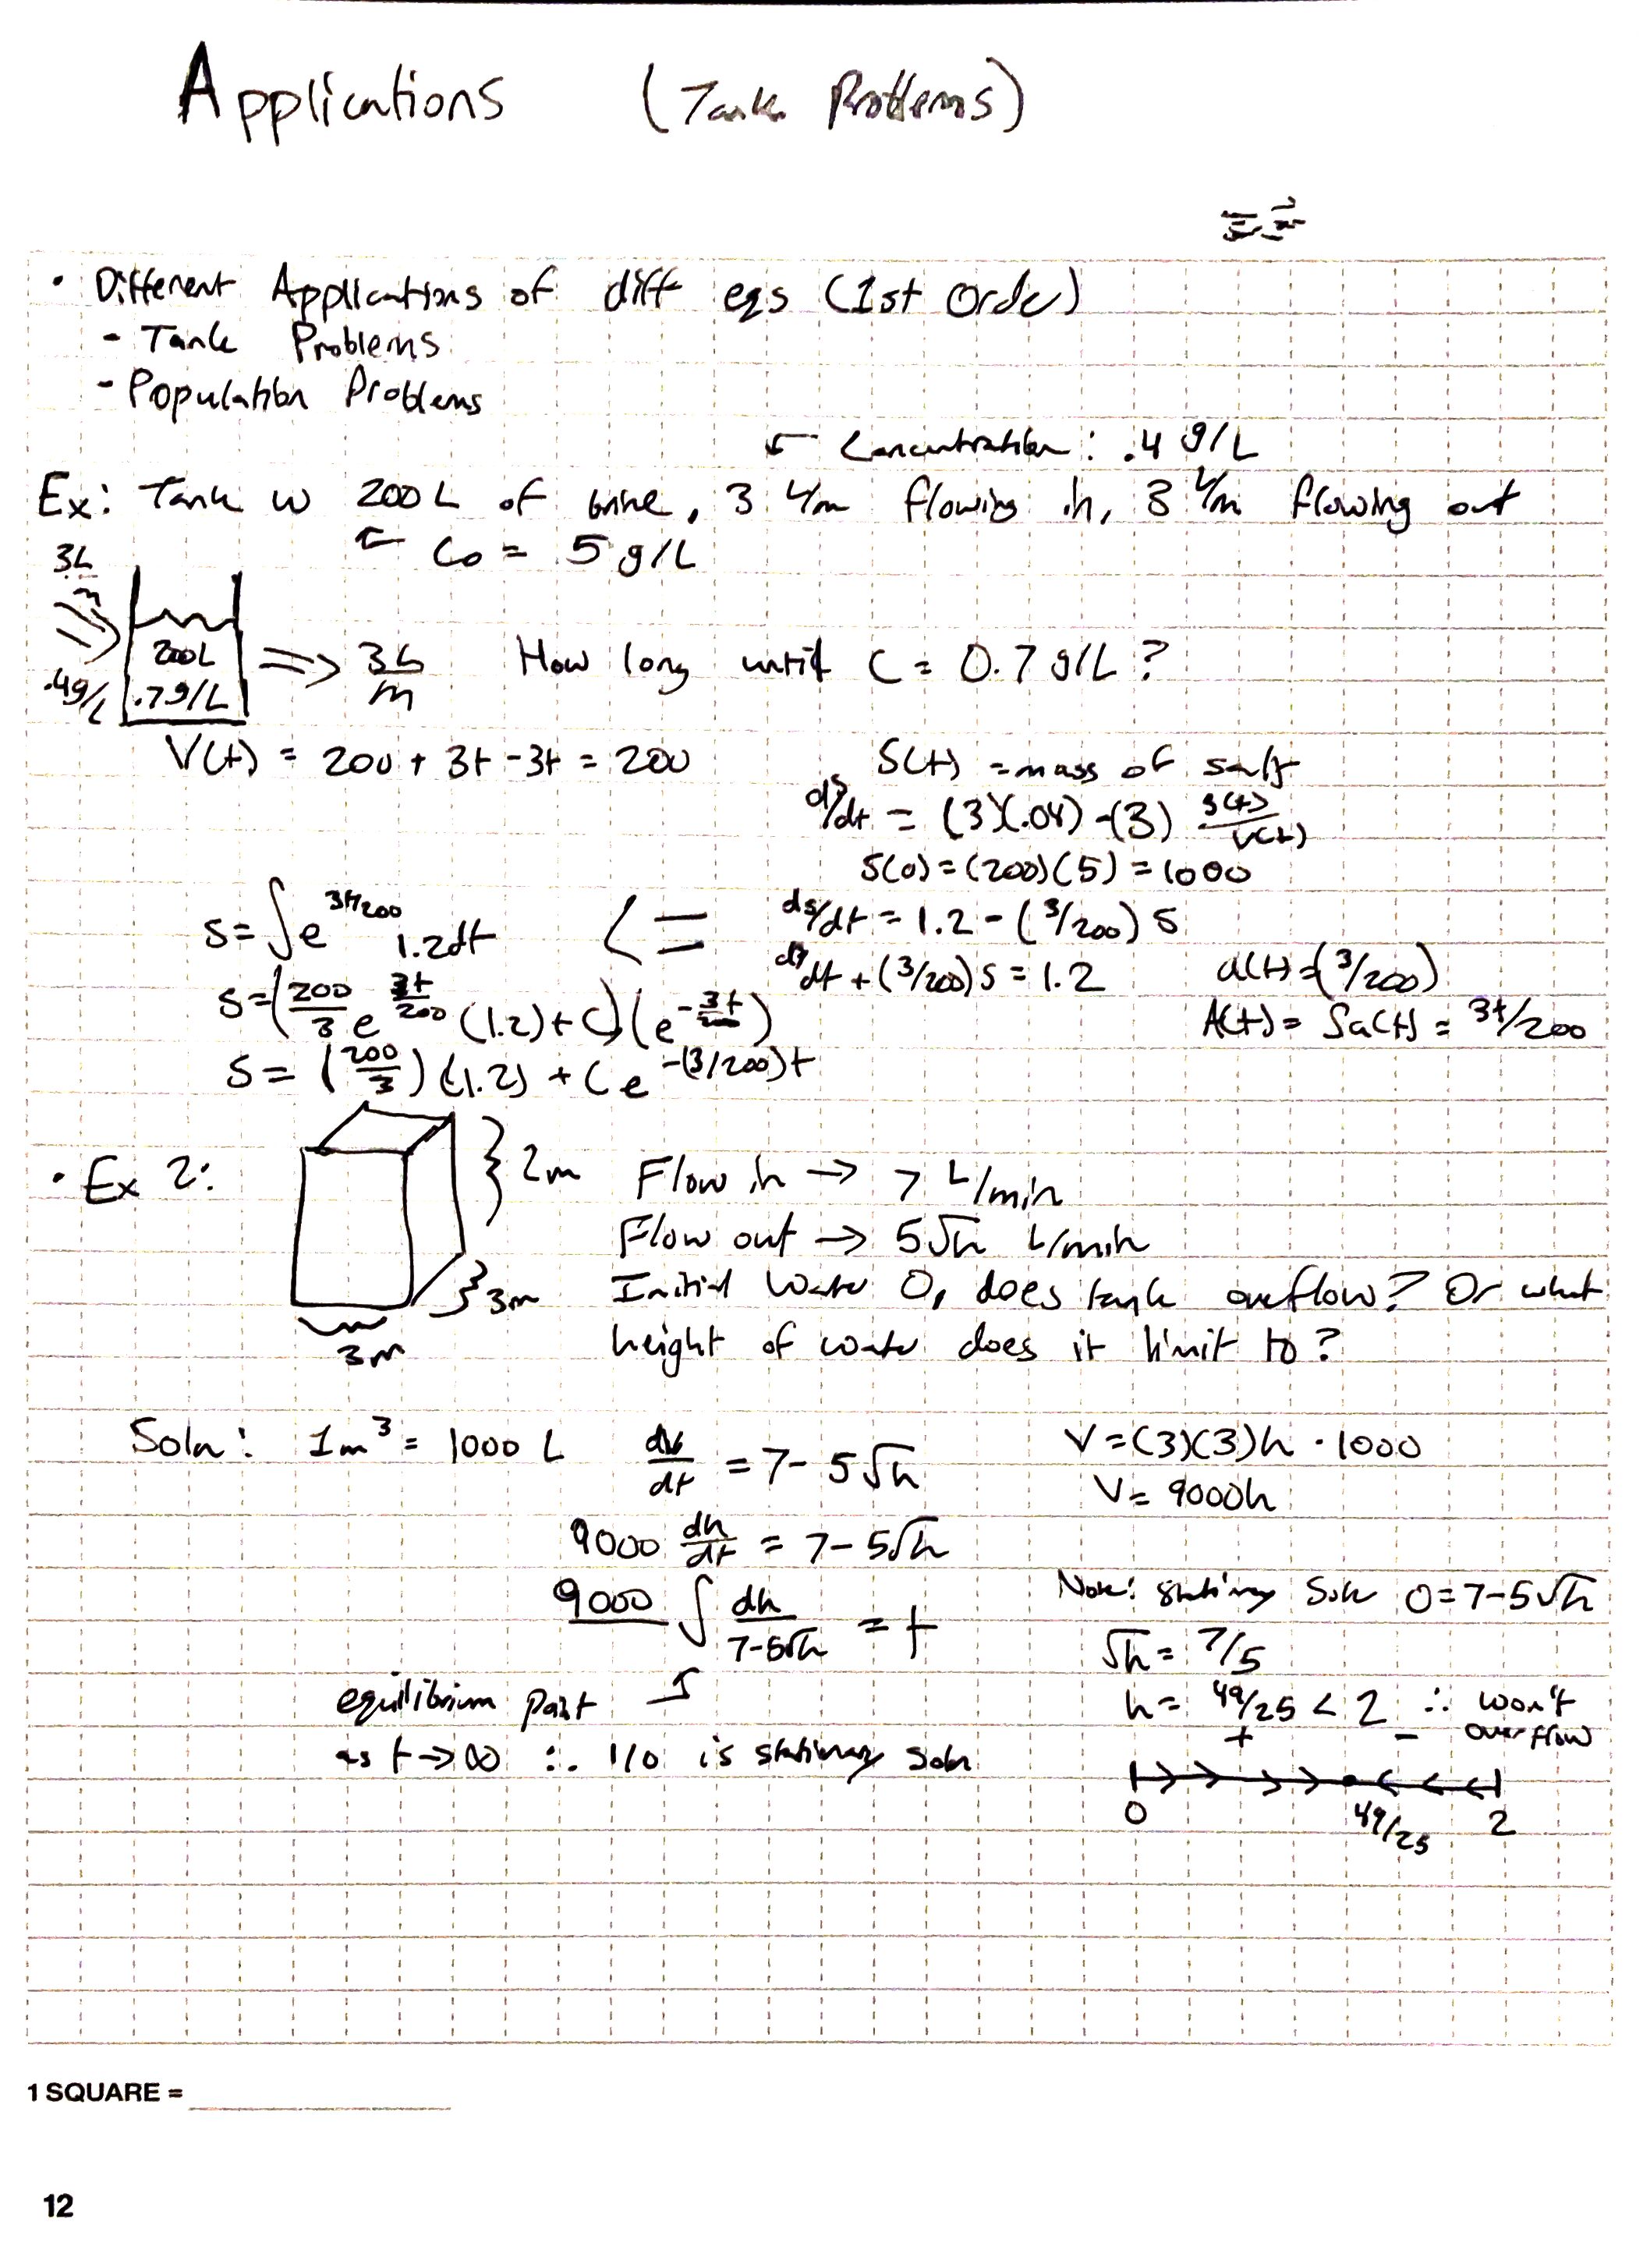 Applications (Tank Problems)
• Different Applications of diff eqs (1st Order)
- Tank Problems
- Population Problems
← Concentration: .4 g/L
Ex: Tank w 200 L of brine, 3 L/m flowing in, 3 L/m flowing out
← C₀ = 5 g/L
3L/m
.4g/L
200L
.7g/L
⇒ 3L/m
How long until C = 0.7 g/L?
V(t) = 200 + 3t - 3t = 200
S(t) = mass of salt
ds/dt = (3)(.04) - (3) s(t)/v(t)
S(0) = (200)(5) = 1000
ds/dt = 1.2 - (3/200) s
ds/dt + (3/200) s = 1.2
a(t) = (3/200)
A(t) = ∫a(t) = 3t/200
<=
s = ∫e^3t/200 1.2dt
s = (200/3 e^3t/200 (1.2) + C)(e^-3t/200)
s = (200/3)(1.2) + Ce^-(3/200)t
• Ex 2:
2m
3m
3m
Flow in → 7 L/min
Flow out → 5√h L/min
Initial Water 0, does tank overflow? Or what
height of water does it limit to?
Soln: 1m³ = 1000 L
dv/dt = 7 - 5√h
V = (3)(3)h · 1000
V = 9000h
9000 dh/dt = 7 - 5√h
9000 ∫ dh/7-5√h = t
Note: stationary Soln 0 = 7 - 5√h
√h = 7/5
h = 49/25 < 2 ∴ won't
overflow
equilibrium point
as t → ∞ ∴ 1/0 is stationary soln
+ -
0 49/25 2
1 SQUARE =
12